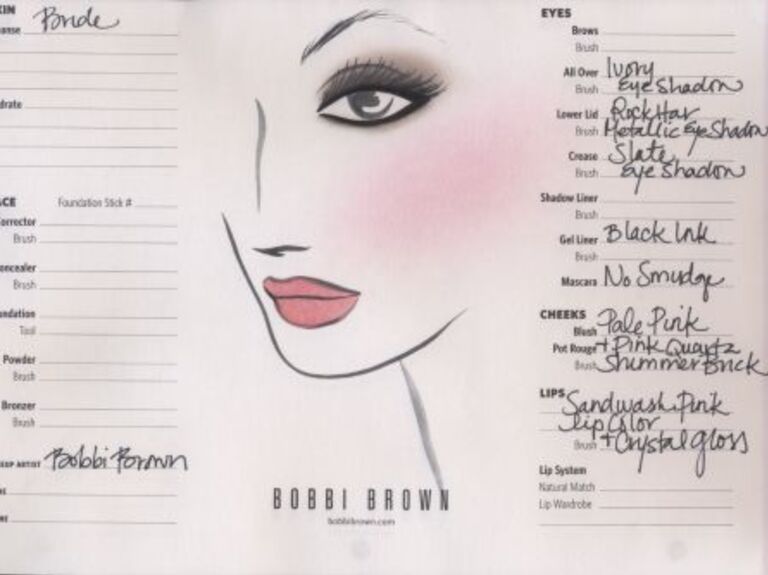 KIN
anse Bride
drate
CE Foundation Stick #
orrector
Brush
oncealer
Brush
undation
Tool
Powder
Brush
Bronzer
Brush
UP ARTIST Bobbi Brown
BOBBI BROWN
bobbibrown.com
EYES
Brows
Brush
All Over Ivory
Brush Eye Shadow
Lower Lid Rock Star
Brush Metallic Eye Shadow
Crease Slate
Brush Eye Shadow
Shadow Liner
Brush
Gel Liner Black Ink
Brush
Mascara No Smudge
CHEEKS
Blush Pale Pink
Pot Rouge + Pink Quartz
Brush Shimmer Brick
LIPS Sandwash Pink
Lip Color
Brush + Crystal gloss
Lip System
Natural Match
Lip Wardrobe